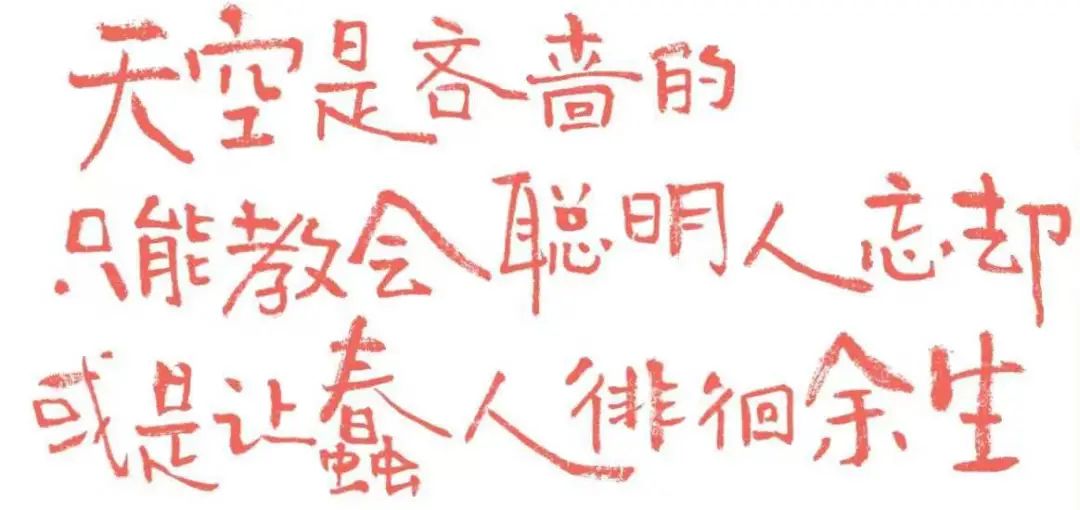 天空是吝啬的
只能教会聪明人忘却
或是让蠢人徘徊余生